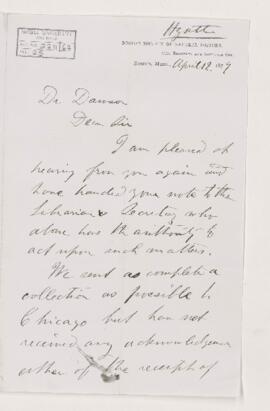 Hyatt
BOSTON SOCIETY OF NATURAL HISTORY,
Boston, Mass., April 12
Dr. Dawson
Dear Sir
I am pleased at
hearing from you again and
have handed your note to the
Librarian & Secretary who
alone has the authority to
act upon such matters.
We sent as complete a
collection as possible to
Chicago but have not
received any acknowledgement
either of the receipt of